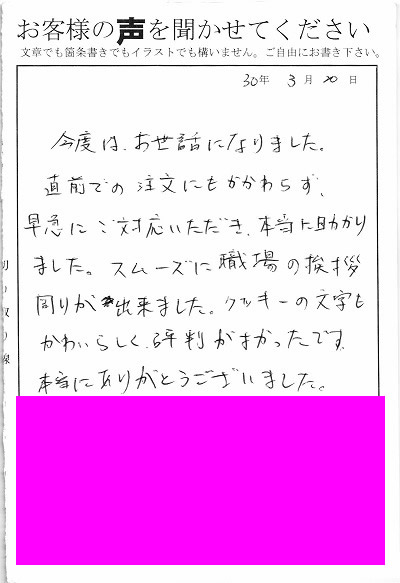 お客様の声を聞かせてください
文章でも箇条書きでもイラストでも構いません。ご自由にお書き下さい。
30年 3月 20日
今度は、お世話になりました。
直前での注文にもかかわらず、
早急にご対応いただき、本当に助かり
ました。スムーズに職場の挨拶
回りが出来ました。クッキーの文字も
かわいらしく、評判がよかったです。
本当にありがとうございました。
切り取り線